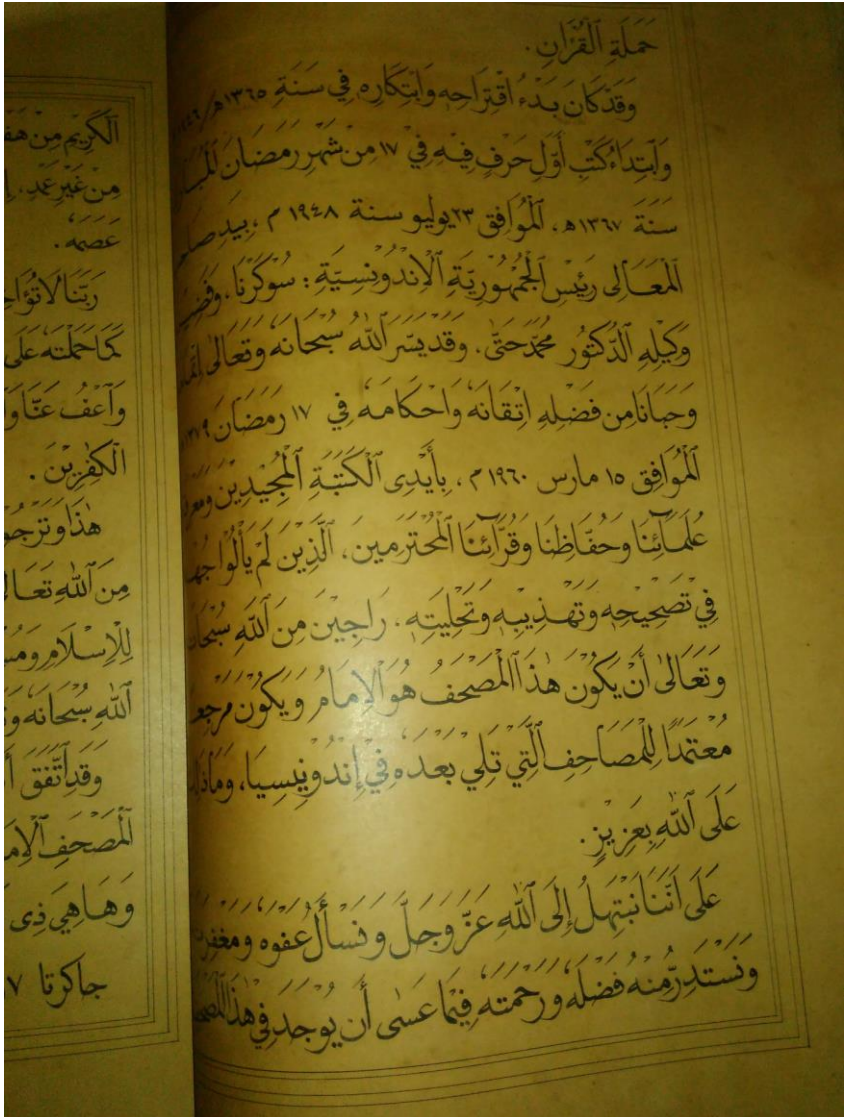 حَمَلَةِ الْقُرْاٰنِ.
وَقَدْ كَانَ بَدْءُ اقْتِرَاحِهٖ وَابْتِكَارِهٖ فِي سَنَةِ ١٣٦٥هـ/
وَابْتِدَاءُ كَتْبِ أَوَّلِ حَرْفٍ فِيْهِ فِيْ ١٧ مِنْ شَهْرِ رَمَضَانَ
سَنَةَ ١٣٦٧هـ، الْمُوَافِقِ ٢٣ يوليو سنة ١٩٤٨ م، بِيَدِ
الْمَعَالِى رَئِيْسِ الْجُمْهُوْرِيَّةِ الْاِنْدُوْنِسِيَّةِ: سُوْكَرْنَا،
وَكِيْلِهِ الدُّكْتُوْر مُحَمَّدْ حَتَّى. وَقَدْ يَسَّرَ اللّٰهُ سُبْحَانَهٗ وَتَعَالٰى
وَحَبَانَا مِن فَضْلِهٖ اِتْقَانَهٗ وَاِحْكَامَهٗ فِيْ ١٧ رَمَضَانَ
الْمُوَافِق ١٥ مارس ١٩٦٠ م، بِأَيْدِى الْكَتَبَةِ الْمُجِيْدِيْنَ
عُلَمَآئِنَا وَحُفَّاظِنَا وَقُرَّآئِنَا الْمُحْتَرَمِينَ، الَّذِيْنَ لَمْ يَأْلُوْا
فِيْ تَصْحِيْحِهٖ وَتَهْذِيْبِهٖ وَتَحْلِيَتِهٖ. رَاجِيْنَ مِنَ اللّٰهِ
وَتَعَالٰى أَنْ يَكُوْنَ هٰذَا الْمُصْحَفُ هُوَ الْاِمَامُ وَيَكُوْنَ
مُعْتَمَدًا لِلْمَصَاحِفِ الَّتِيْ تَلِيْ بَعْدَهٗ فِيْ إِنْدُوْنِيْسِيَا،
عَلَى اللّٰهِ بِعَزِيْزٍ.
عَلَى اَنَّنَا نَبْتَهِلُ إِلَى اللّٰهِ عَزَّ وَجَلَّ وَنَسْأَلُ عَفْوَهٗ
وَنَسْتَدِرُّ مِنْهُ فَضْلَهٗ وَرَحْمَتَهٗ فِيْمَا عَسٰى أَن يُوْجَدَ فِيْ
الْكَرِيْمِ مِنْ
مِنْ غَيْرِ عَمْدٍ،
عَصَمَهٗ.
رَبَّنَا لَا
كَمَا حَمَلْتَهٗ عَلَى
وَاعْفُ عَنَّا
الْكٰفِرِيْنَ.
هٰذَا
مِنَ اللّٰهِ
لِلْاِسْلَامِ
اللّٰهِ سُبْحَانَهٗ
وَقَدِ اتَّفَقَ
الْمُصْحَفِ
وَهَاهِيَ ذِى
جاكرتا